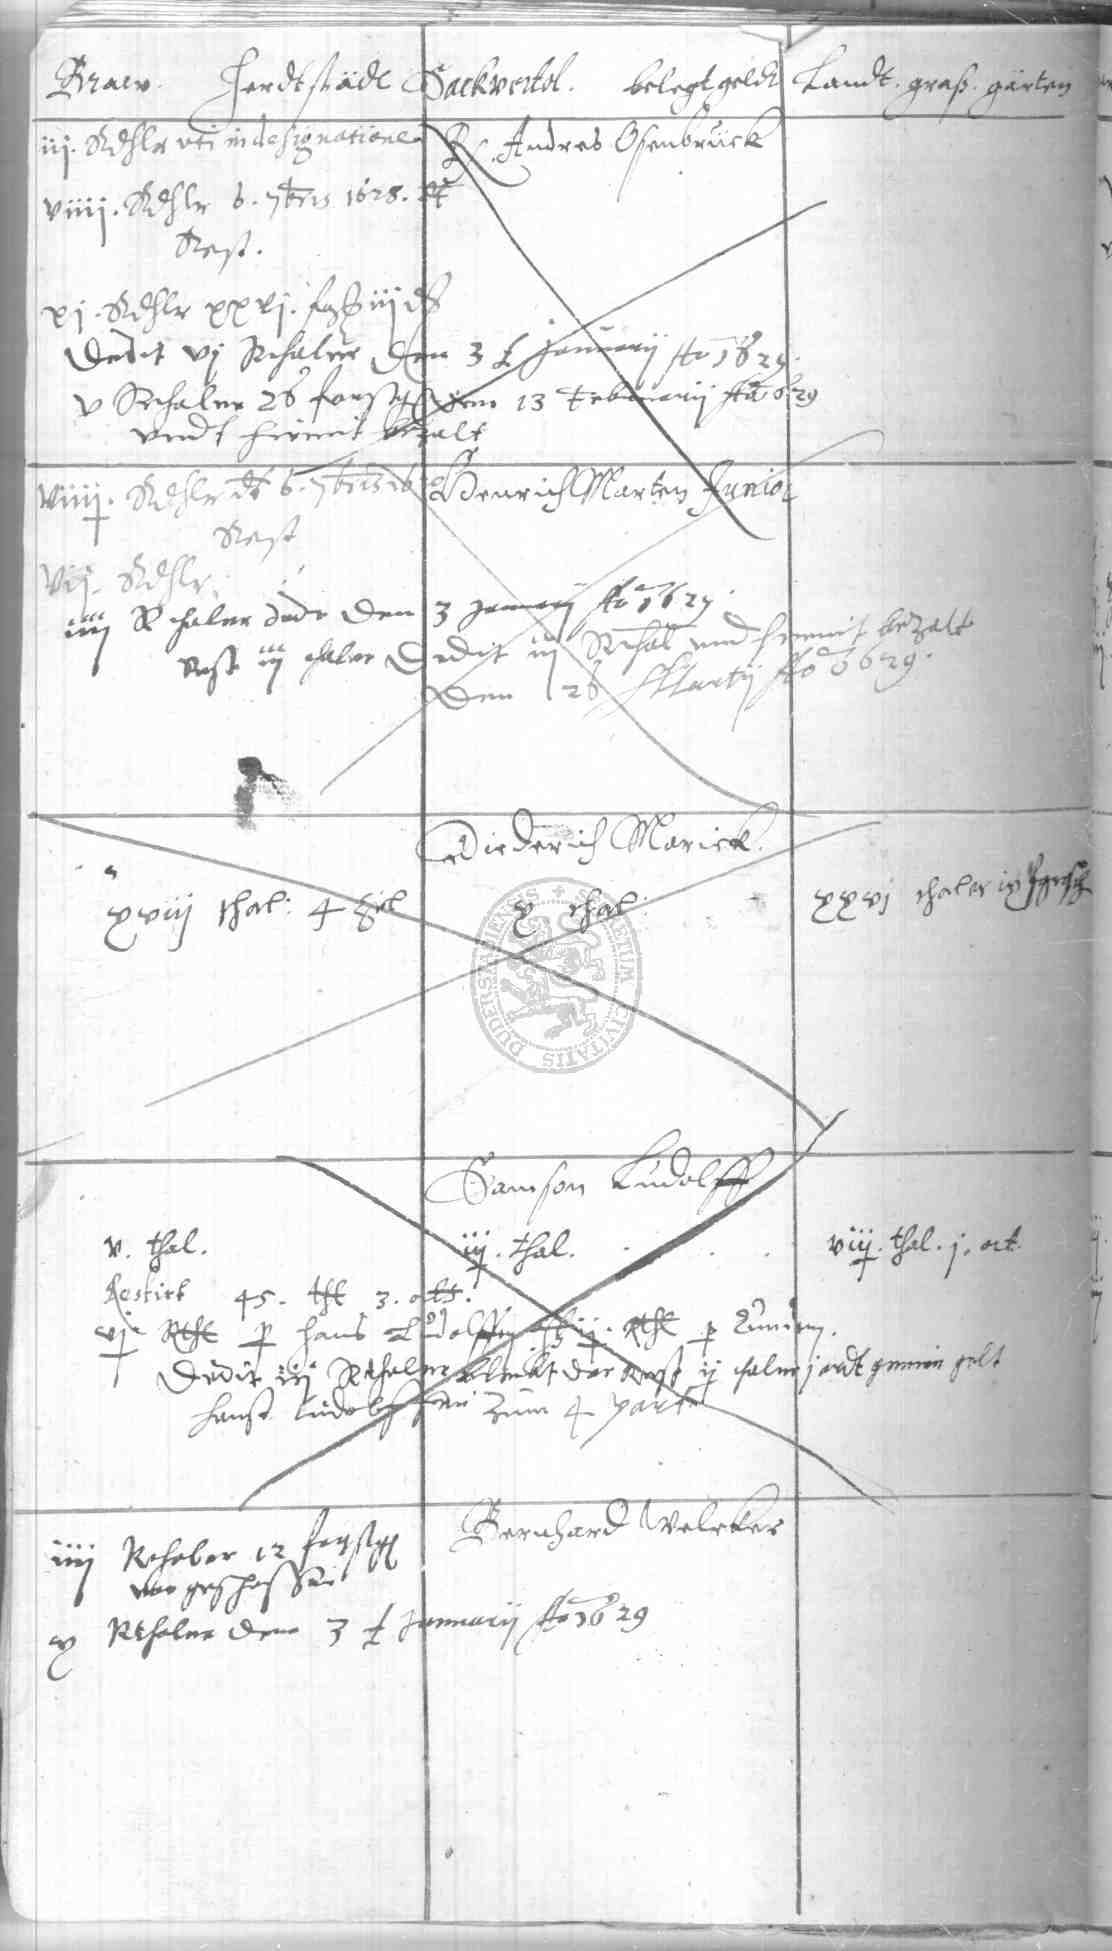 Braw. Herdtstädt Sackviertel. belegt geldt Landt. graß. gärten
iij. Rthlr uti in designatione H. Andres Osenbrück
viiij. Rthlr 6. 7bris 1628.
Rest.
xj. Rthlr xxvj. iij
Dedit vj Rthaler den 3 January Ao 1629.
v Rthaler 26 den 13 February Ao 1629
undt hiemit bezalt
viiij. Rthlr dt 6. 7bris Henrich Marten Junior
Rest
vij. Rthlr.
iiij Rthaler dedit den 3 January Ao 1629.
Rest iij thaler Dedit iij Rthal und hiemit bezalt
den 26 Martij Ao 1629.
Diederich Marick.
xviij thal: 4 x thal: xxvj thaler
SECRETUM CIVITATIS DUDERSTADIENSIS
Samson Ludolff
v. thal. iij. thal. viij. thal. j. ort.
Restirt 45. thl 3. orts.
vj Rthl p hans Ludolffen ij. Rthl p
Dedit iij Rthaler bleibt der Rest ij thaler j ordt gemein gelt
hanß Ludolffen zum 4 parte
iiij Rthaler 12 Bernhard Welcker
vor geschossen
x Rthaler den 3 January Ao 1629